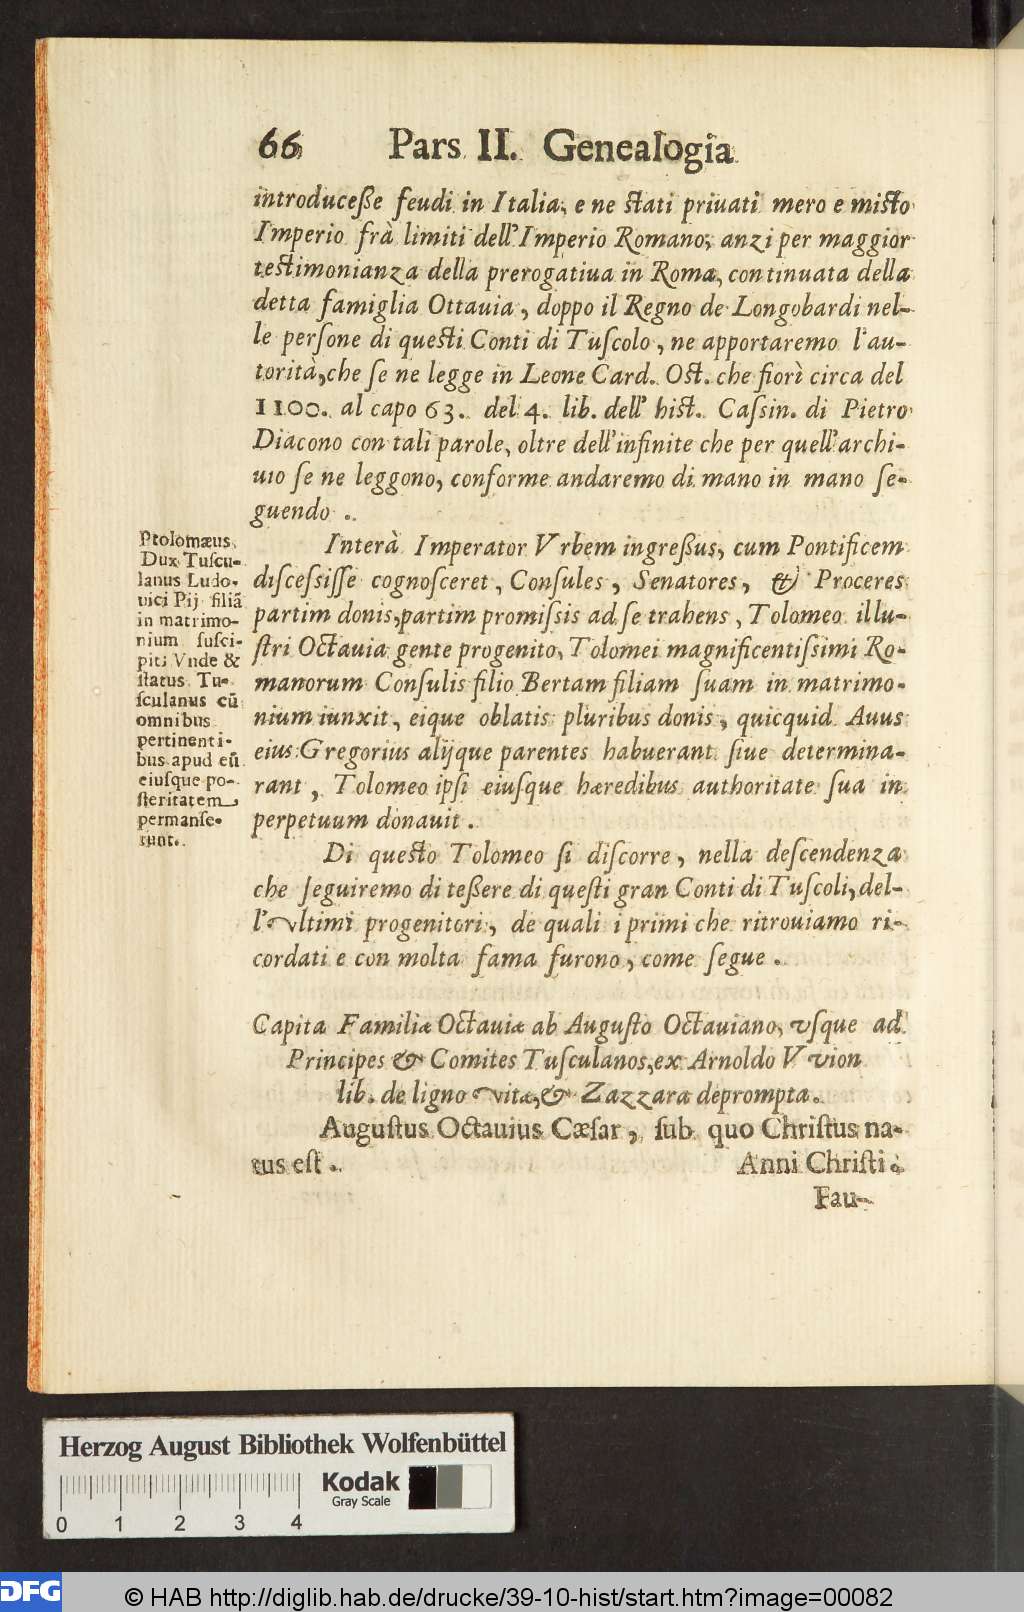 66 Pars II. Genealogia
introduceße feudi in Italia, e ne ſtati priuati mero e miſto
Imperio frà limiti dell'Imperio Romano, anzi per maggior
teſtimonianza della prerogatiua in Roma, continuata della
detta famiglia Ottauia, doppo il Regno de Longobardi nel-
le perſone di queſti Conti di Tuſcolo, ne apportaremo l'au-
torità, che ſe ne legge in Leone Card. Oſt. che fiorì circa del
1100. al capo 63. del 4. lib. dell' hiſt. Caſſin. di Pietro
Diacono con tali parole, oltre dell'infinite che per quell'archi-
uio ſe ne leggono, conforme andaremo di mano in mano ſe-
guendo.
Interà Imperator Vrbem ingreßus, cum Pontificem
diſceſsiſſe cognoſceret, Conſules, Senatores, & Proceres
partim donis, partim promiſsis ad ſe trahens, Tolomeo illu-
ſtri Octauia gente progenito, Tolomei magnificentiſsimi Ro-
manorum Conſulis filio Bertam filiam ſuam in matrimo-
nium iunxit, eique oblatis pluribus donis, quicquid Auus
eius Gregorius alijque parentes habuerant ſiue determina-
rant, Tolomeo ipſi eiuſque hæredibus authoritate ſua in
perpetuum donauit.
Ptolomæus
Dux Tuſcu-
lanus Ludo-
uici Pij filiã
in matrimo-
nium ſuſci-
pit; Vnde &
ſtatus Tu-
ſculanus cũ
omnibus
pertinenti-
bus apud eũ
eiuſque po-
ſteritatem
permanſe-
runt.
Di queſto Tolomeo ſi diſcorre, nella deſcendenza
che ſeguiremo di teßere di queſti gran Conti di Tuſcoli, del-
l'vltimi progenitori, de quali i primi che ritrouiamo ri-
cordati e con molta fama furono, come ſegue.
Capita Familiæ Octauiæ ab Auguſto Octauiano, vſque ad
Principes & Comites Tuſculanos, ex Arnoldo Vvion
lib. de ligno vitæ, & Zazzara deprompta.
Auguſtus Octauius Cæſar, ſub quo Chriſtus na-
tus eſt. Anni Chriſti
Fau-
Herzog August Bibliothek Wolfenbüttel
Kodak
Gray Scale
0 1 2 3 4
DFG © HAB http://diglib.hab.de/drucke/39-10-hist/start.htm?image=00082